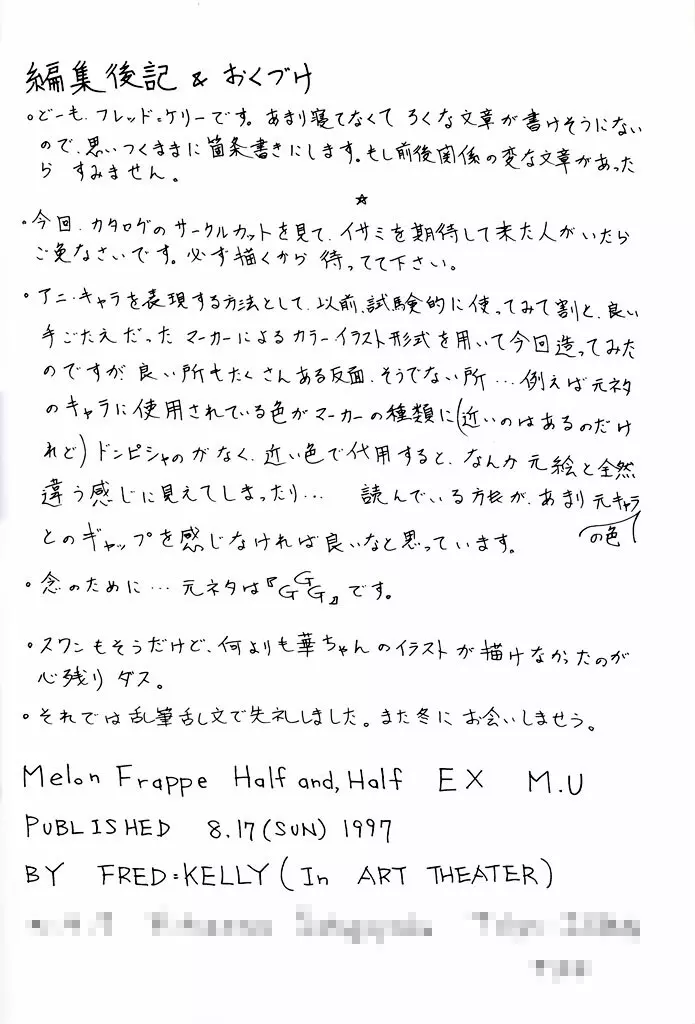 編集後記 & おくづけ
。どーも、フレッド=ケリーです。あまり寝てなくて ろくな文章が書けそうにない
ので、思いつくままに箇条書きにします。もし前後関係の変な文章があった
ら すみません。
☆
・今回、カタログのサークルカットを見て、イサミを期待して来た人がいたら
ご免なさいです。必ず描くから 待ってて下さい。
・アニ・キャラを表現する方法として、以前、試験的に使ってみて割と、良い
手ごたえだった マーカーによるカラーイラスト形式を用いて今回造ってみた
のですが、良い所もたくさんある反面、そうでない所…例えば元ネタ
のキャラに使用されている色がマーカーの種類に(近いのはあるのだけ
れど)ドンピシャのがなく、近い色で代用すると、なんか元絵と全然
違う感じに見えてしまったり… 読んでいる方が、あまり元キャラ
の色
とのギャップを感じなければ良いなと思っています。
・念のために…元ネタは『GGG』です。
・スワンもそうだけど、何よりも華ちゃんのイラストが描けなかったのが
心残り ダス。
。それでは乱筆乱文で失礼しました。また冬に お会いしませう。
Melon Frappe Half and, Half EX M.U
PUBLISHED 8.17(SUN) 1997
BY FRED=KELLY(In ART THEATER)